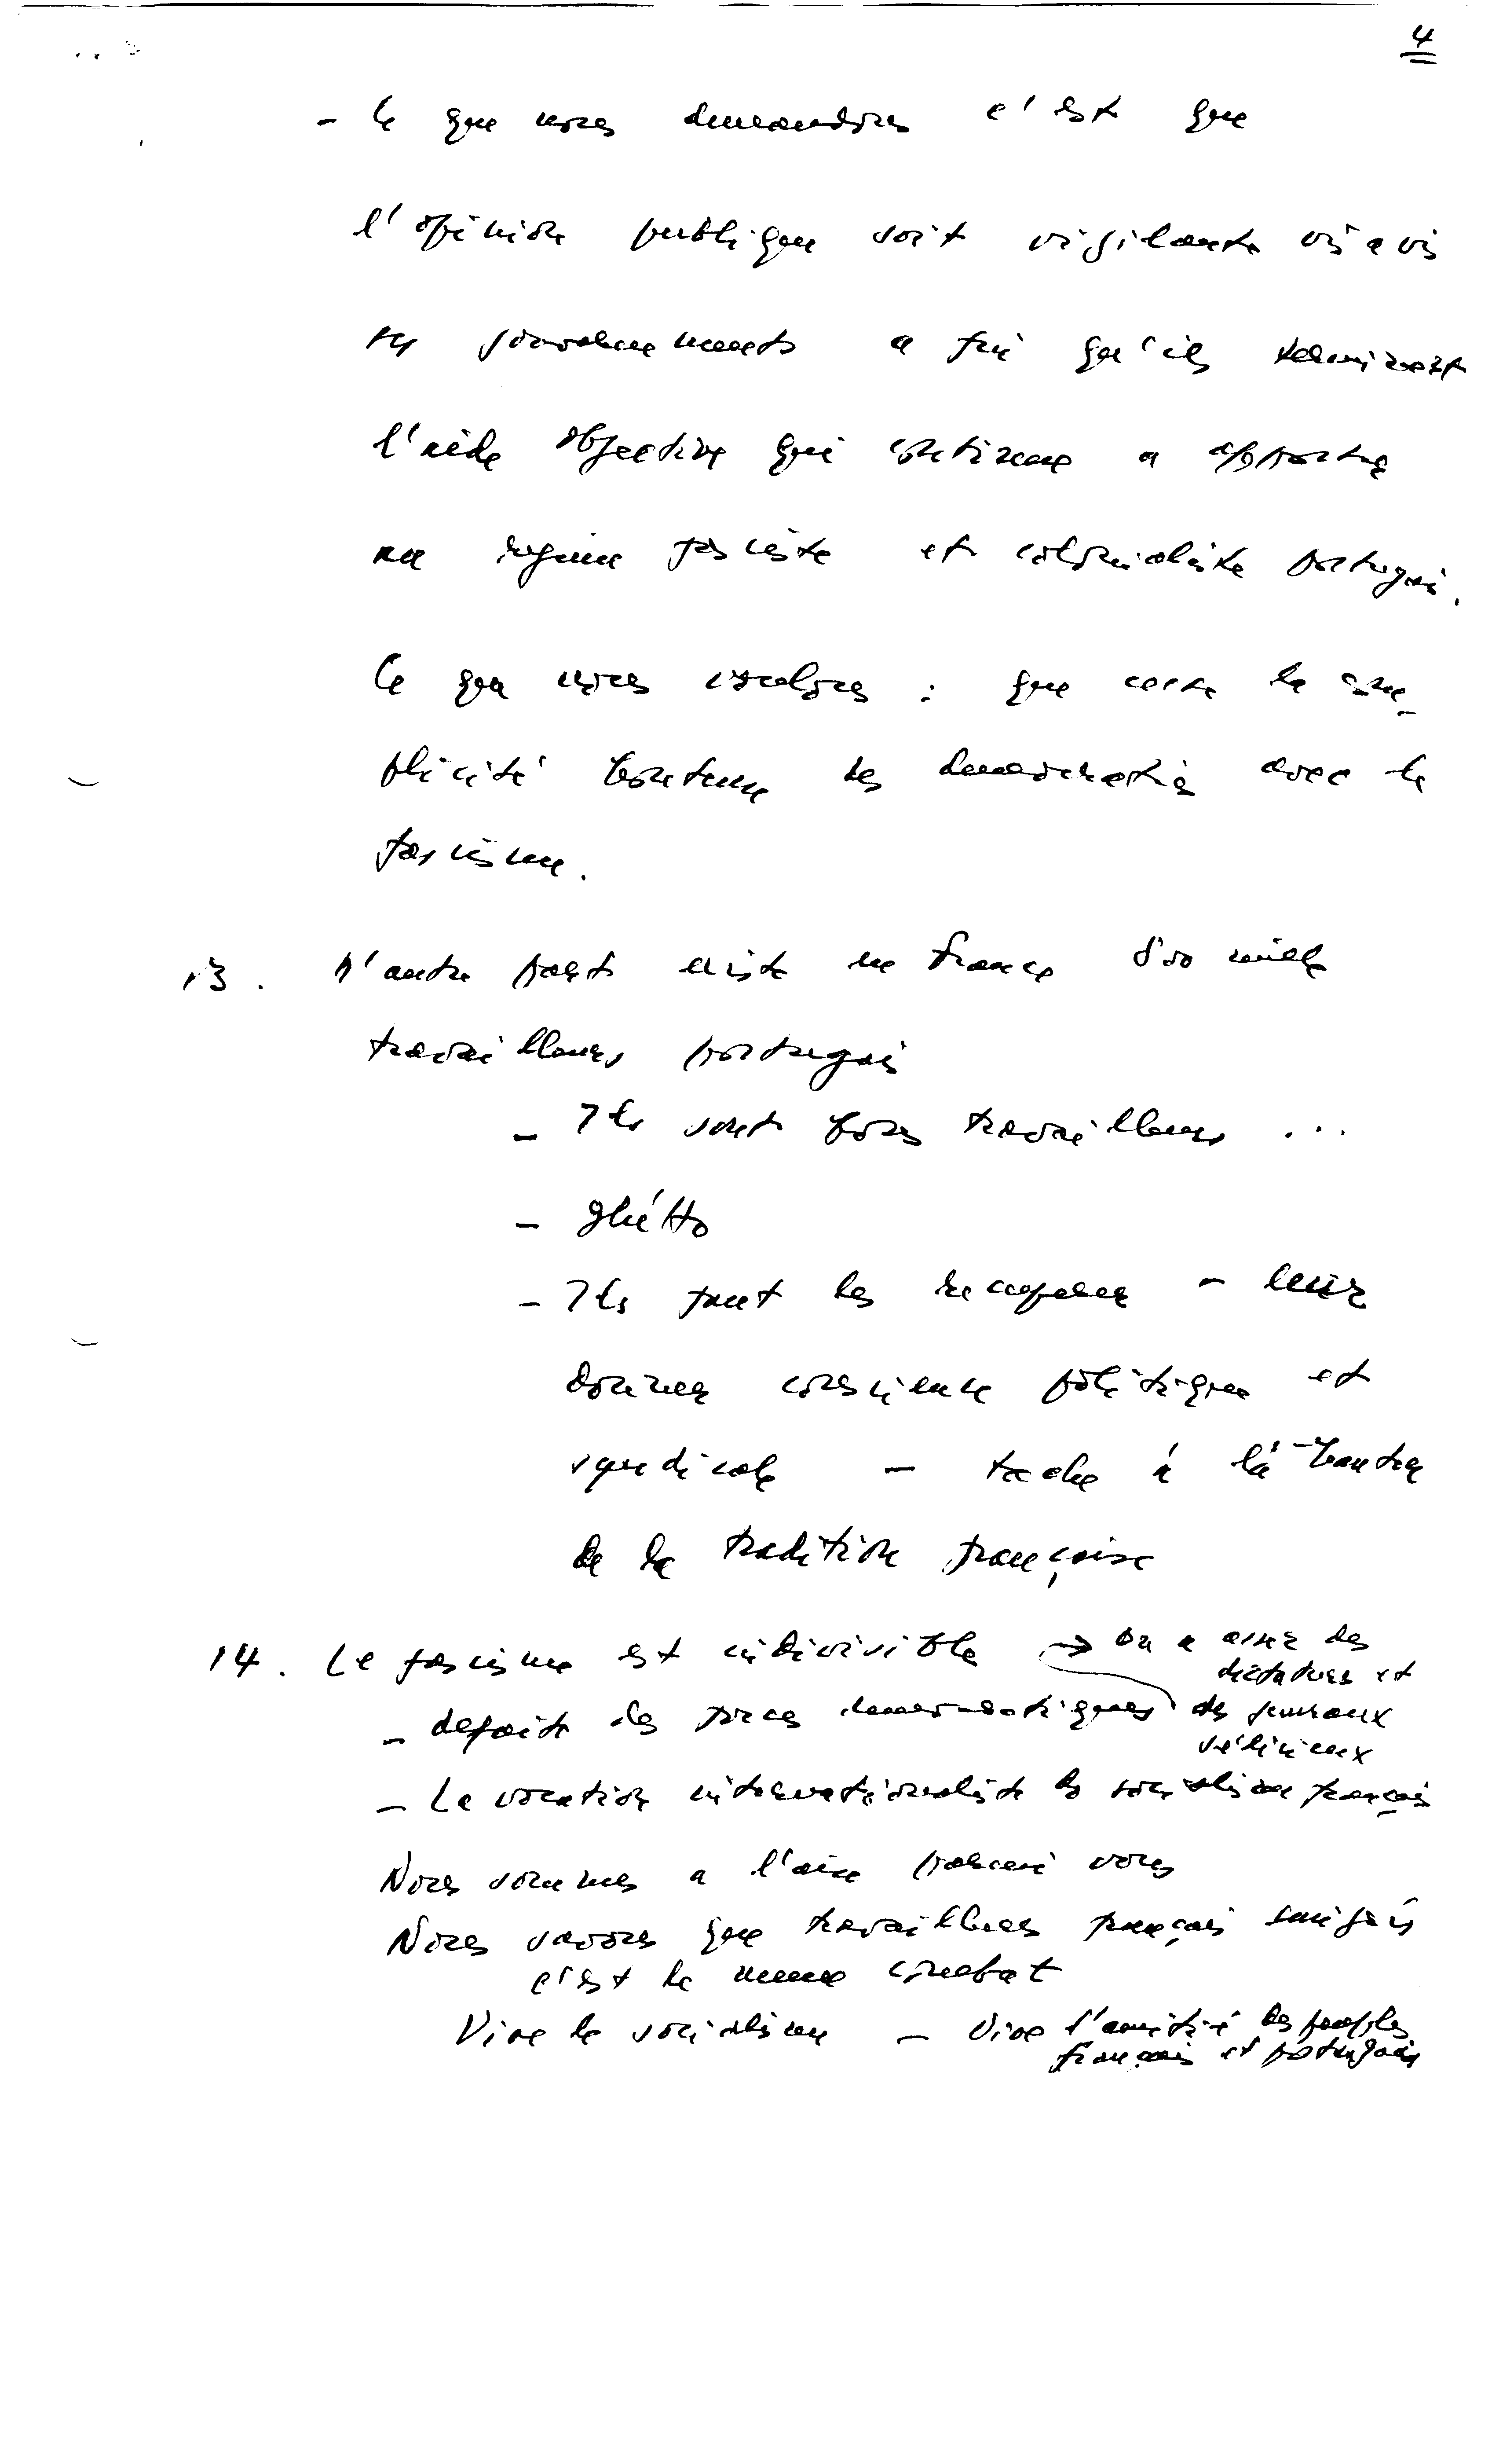 4
- Ce que nous demandons c'est que
l'opinion publique soit vigilante vis a vis
des gouvernements a fin qu'ils terminent
l'aide objective qui continue a apporter
au regime fasciste et colonialiste portugais.
Ce que nous voulons : que cesse la com-
plicité honteuse des democraties avec le
fascisme.
13. D'autre part existe en France 800 mille
travailleurs portugais
- Ils sont bons travailleurs ...
- ghétto
- Ils faut les - leur
donner conscience politique et
syndicale - tache á lá hauter
de la tradition française
14. Le fascisme est indivisible → on a assez des
dictatures et
des generaux
- defaite des forces democratiques
- La vocation internationaliste du socialisme français
Nous sommes a l'aise parmi vous
Nous savons que travailleurs français emigrés
c'est le meme combat
Vive le socialisme - Vive l'amitié des peuples
français et portugais